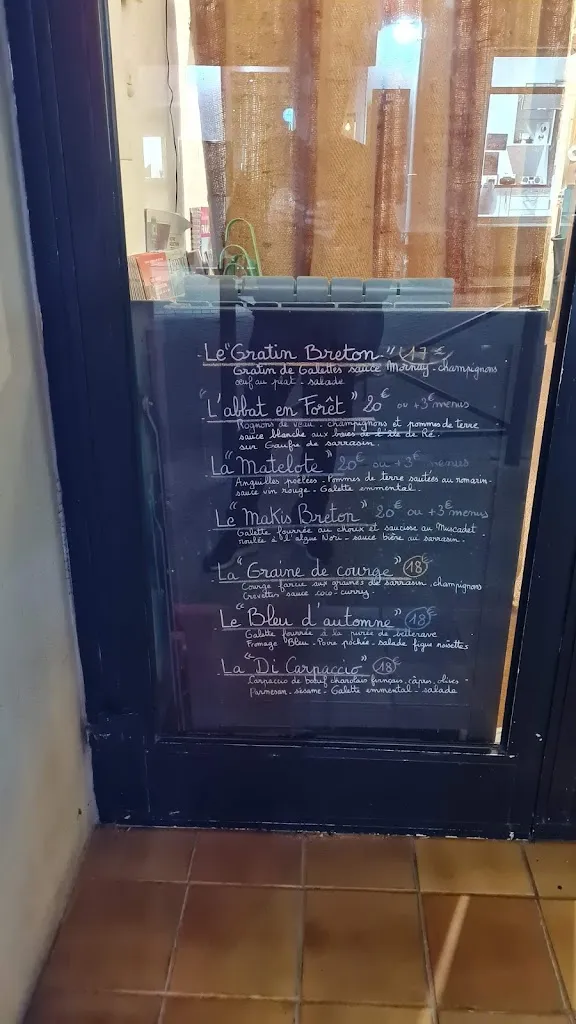 Le "Gratin Breton" 17 €
Gratin de Galettes sauce Mornay - champignons
œuf au plat - salade
"L'abbat en Forêt" 20€ ou +3€ menus
Rognons de veau - champignons et pommes de terre
sauce blanche aux baies de l'île de Ré.
sur Gaufre de sarrasin.
La "Matelote" 20€ ou +3€ menus
Anguilles poelées - Pommes de terre sautées au romarin -
sauce vin rouge - Galette emmental.
Le "Makis Breton" 20€ ou +3€ menus
Galette fourrée au choux et saucisse au Muscadet
roulée à l'algue Nori - sauce bière au sarrasin.
La "Graine de courge" 18€
Courge farcie aux graines de sarrasin, champignons
Crevettes sauce coco-curry.
Le "Bleu d'automne" 18€
Galette fourrée à la purée de betterave
Fromage Bleu - Poire pochée - salade figue noisettes
La "Di Carpaccio" 18€
Carpaccio de bœuf charolais français, câpres, olives -
Parmesan - sésame - Galette emmental - salade